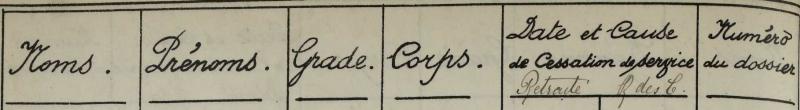 Noms.
Prénoms.
Grade.
Corps.
Date et Cause
de Cessation de Service
Retraite R des C.
Numéro
du dossier